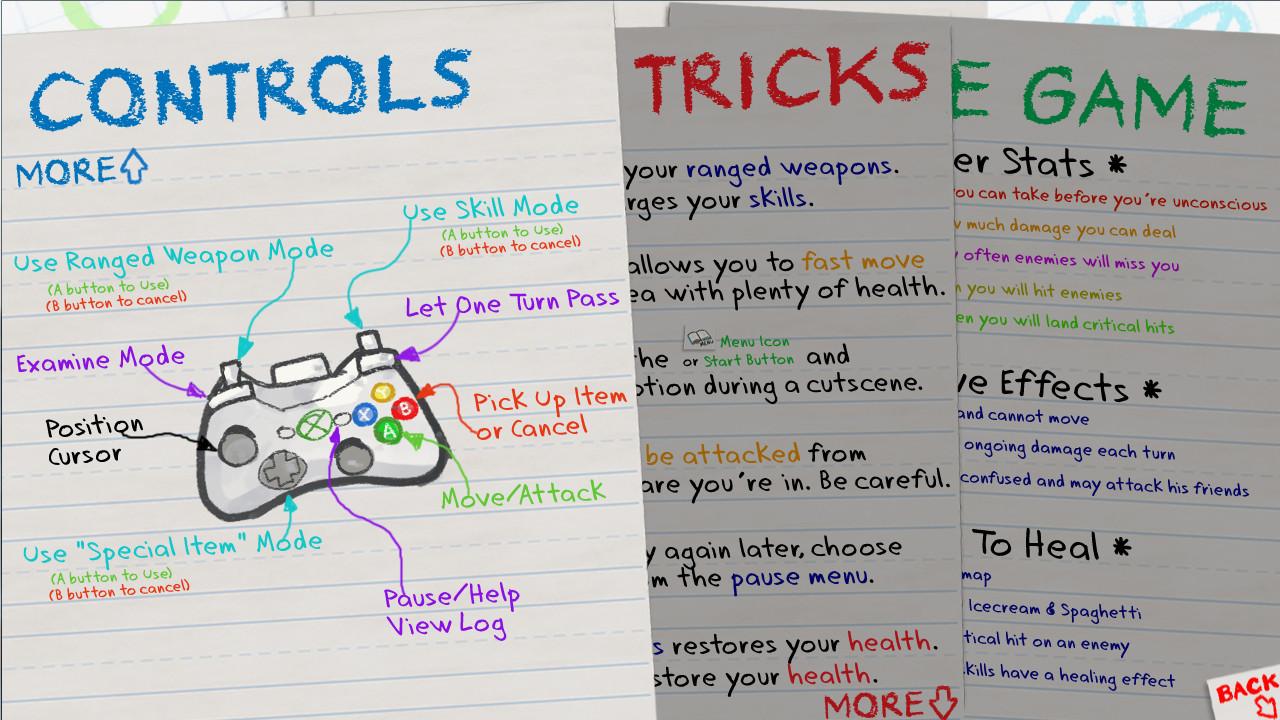 CONTROLS
MORE
Use Skill Mode
(A button to Use)
(B button to cancel)
Use Ranged Weapon Mode
(A button to Use)
(B button to cancel)
Let One Turn Pass
Examine Mode
Position
Cursor
Y
X
B
A
Pick Up Item
or Cancel
Move/Attack
Use "Special Item" Mode
(A button to Use)
(B button to cancel)
Pause/Help
View Log
TRICKS
your ranged weapons.
rges your skills.
allows you to fast move
ea with plenty of health.
he MENU Menu Icon or Start Button and
otion during a cutscene.
be attacked from
are you're in. Be careful.
y again later, choose
m the pause menu.
s restores your health.
store your health.
MORE
E GAME
er Stats *
ou can take before you're unconscious
w much damage you can deal
y often enemies will miss you
n you will hit enemies
en you will land critical hits
ve Effects *
and cannot move
ongoing damage each turn
confused and may attack his friends
To Heal *
map
Icecream & Spaghetti
tical hit on an enemy
kills have a healing effect
BACK